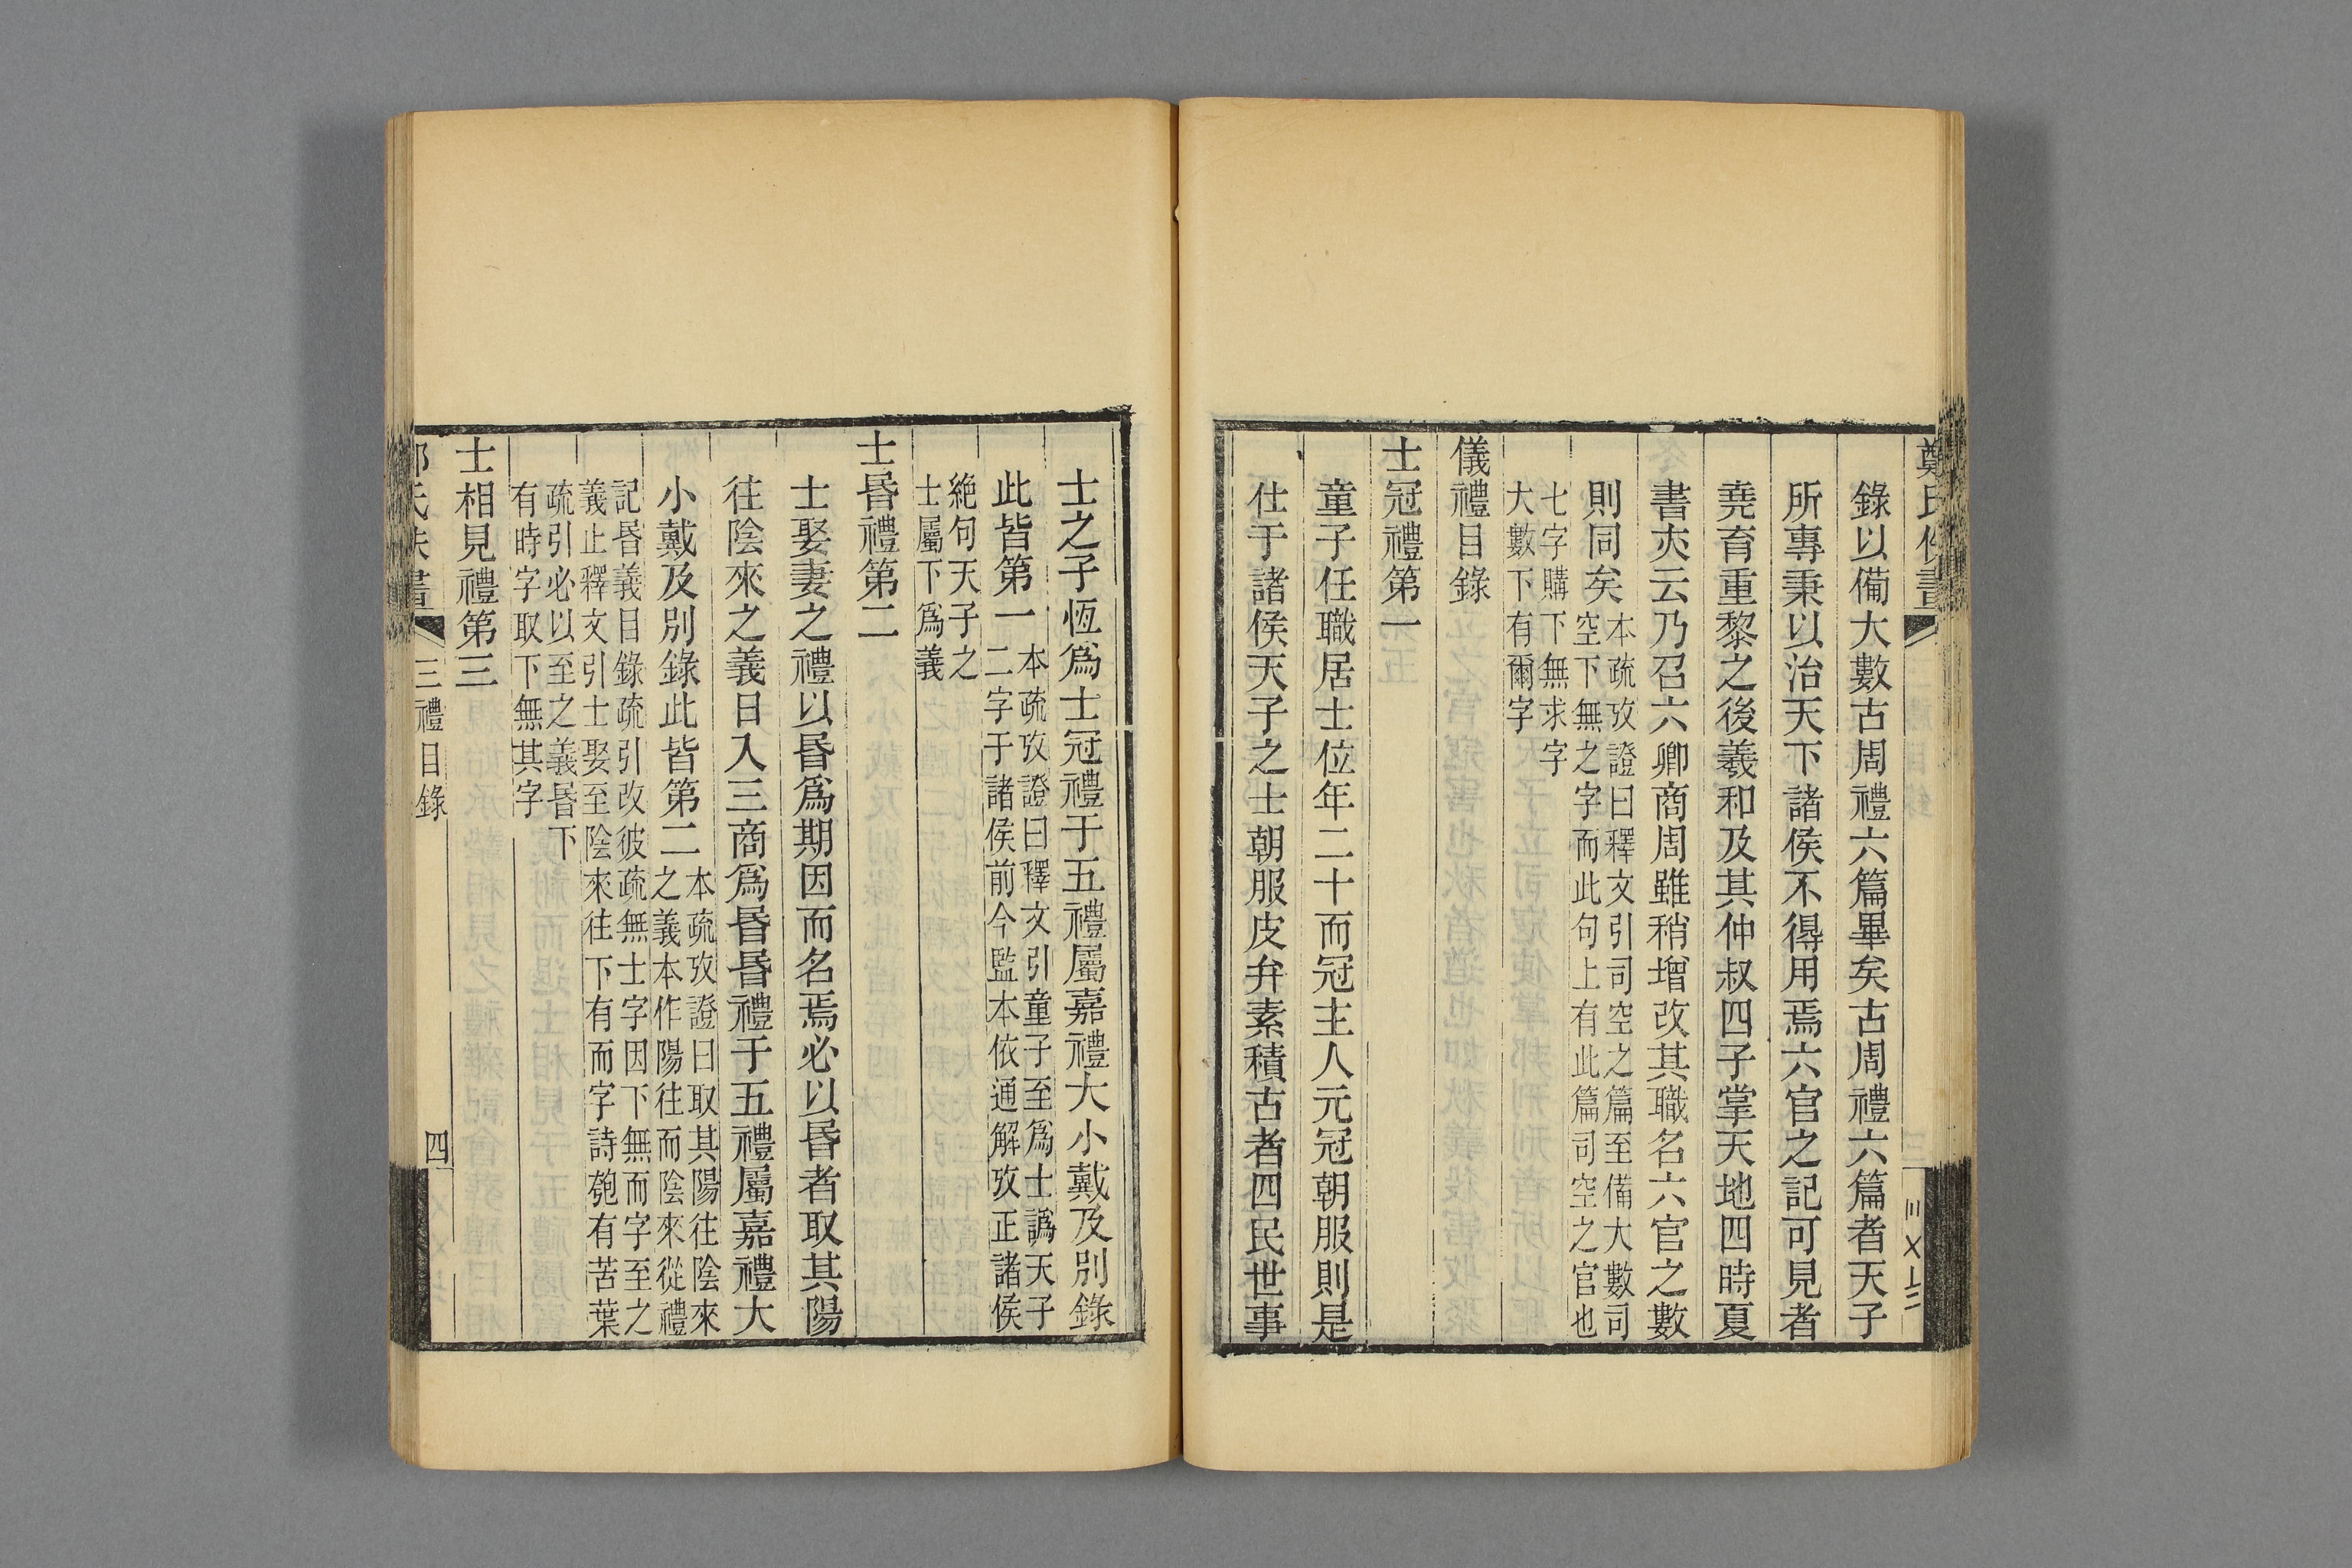 錄以備大數古周禮六篇畢矣古周禮六篇者天子
所專秉以治天下諸侯不得用焉六官之記可見者
堯育重黎之後羲和及其仲叔四子掌天地四時夏
書亦云乃召六卿商周雖稍增改其職名六官之數
則同矣本疏攷證曰釋文引司空之篇至備大數司
空下無之字而此句上有此篇司空之官也
七字購下無求字
大數下有爾字
儀禮目錄
士冠禮第一
童子任職居士位年二十而冠主人元冠朝服則是
仕于諸侯天子之士朝服皮弁素積古者四民世事
士之子恆爲士冠禮于五禮屬嘉禮大小戴及別錄
此皆第一本疏攷證曰釋文引童子至爲士譌天子
二字于諸侯前今監本依通解攷正諸侯
絶句天子之
士屬下爲義
士昬禮第二
士娶妻之禮以昬爲期因而名焉必以昬者取其陽
往陰來之義日入三商爲昬昬禮于五禮屬嘉禮大
小戴及別錄此皆第二本疏攷證曰取其陽往陰來
之義本作陽往而陰來從禮
記昬義目錄疏引改彼疏無士字因下無而字至之
義止釋文引士娶至陰來往下有而字詩匏有苦葉
疏引必以至之義昬下
有時字取下無其字
士相見禮第三
三禮目錄
四